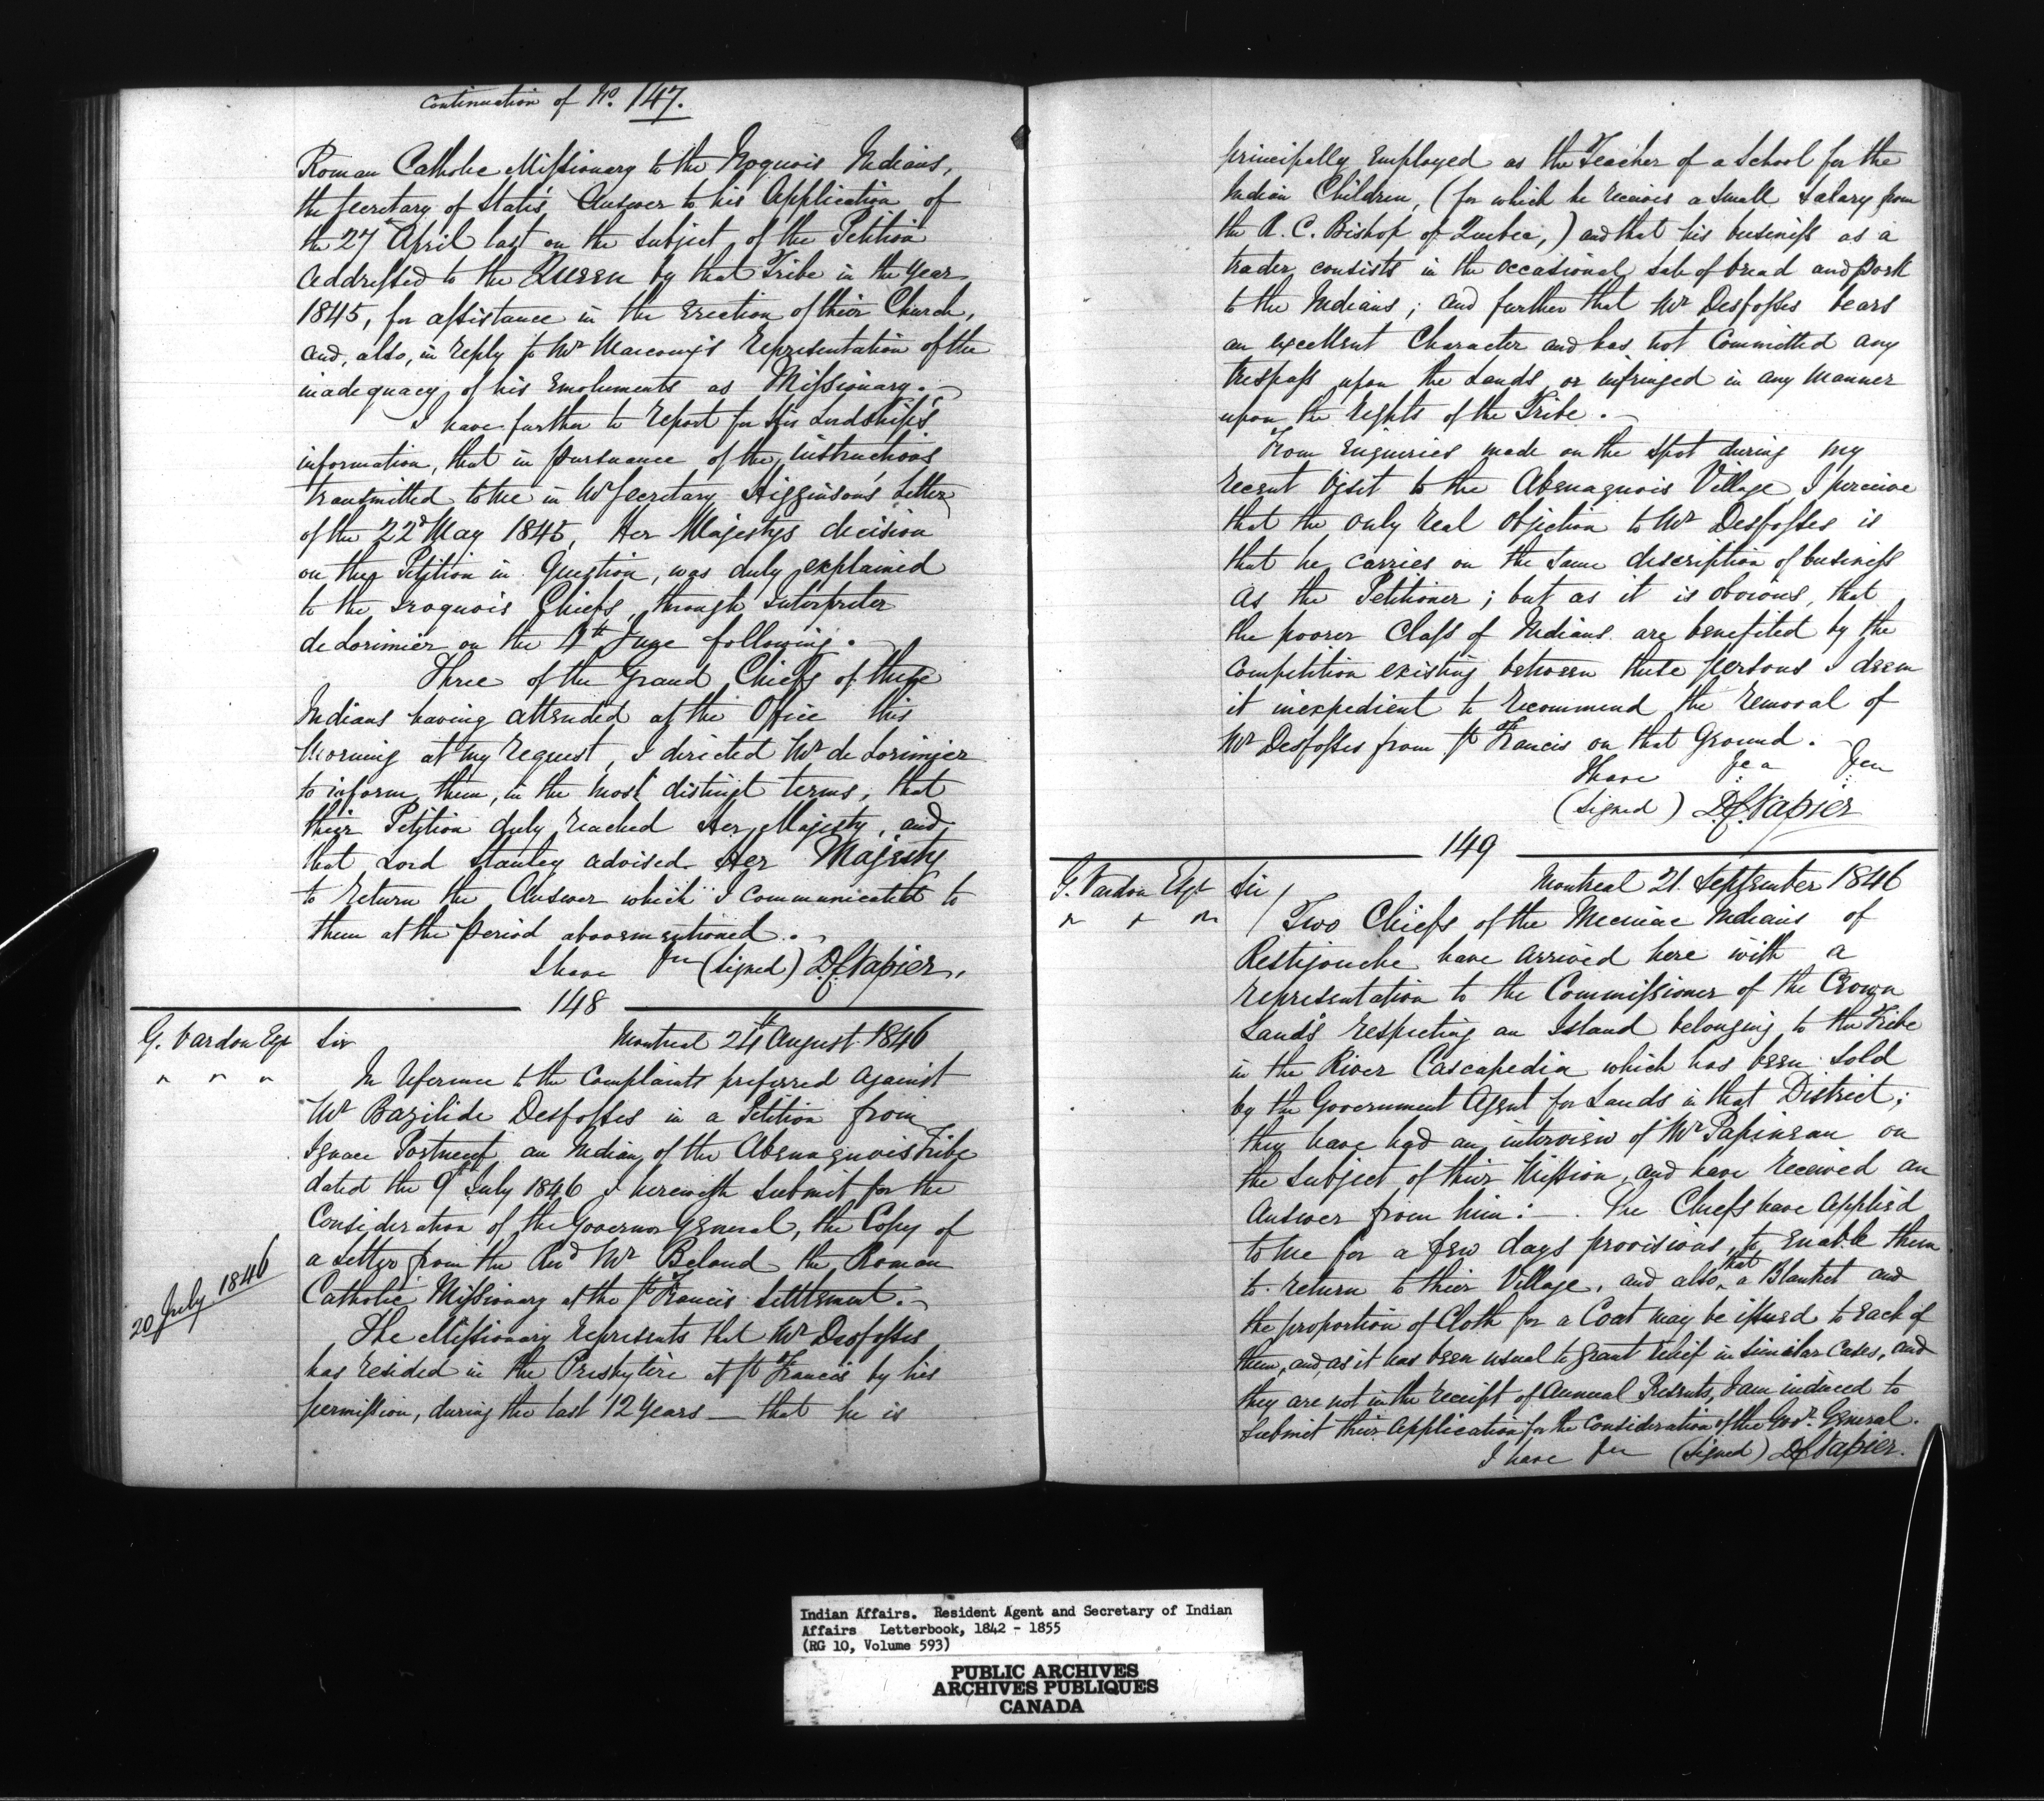 Continuation of No. 147.
Roman Catholic Missionary to the Iroquois Indians,
the Secretary of State's Answer to his Application of
the 27 April last on the subject of the Petition
addressed to the Queen by that Tribe in the Year
1845, for assistance in the Erection of their Church,
and, also, in reply to Mr Marcoux's Representation of the
inadequacy of his Emoluments as Missionary.
I have further to Report for His Lordship's
information, that in pursuance of the instructions
transmitted to me in Mr Secretary Higginson's Letter
of the 22d May 1845, Her Majestys decision
on the Petition in Question, was duly explained
to the Iroquois Chiefs, through Interpreter
de Lorimier on the 4th June following.
Three of the Grand Chiefs of these
Indians having attended at the Office this
Morning at my request, I directed Mr de Lorimier
to inform them, in the most distinct terms, that
their Petition duly reached Her Majesty, and
that Lord Stanley advised Her Majesty
to return the Answer which I communicated to
them at the period abovementioned.
I have &c (signed) D.C. Napier.
148
G. Vardon Esqr Sir Montreal 24th August 1846
" " " In reference to the Complaints preferred against
Mr Bazilide Desfosses in a Petition from
Ignace Portneuf an Indian of the Abenaquois Tribe
dated the 9th July 1846 I herewith submit for the
Consideration of the Governor General, the Copy of
20 July 1846
a Letter from the Revd Mr Beland the Roman
Catholic Missionary at the St Francis Settlement.
The Missionary represents that Mr Desfosses
has resided in the Presbytère at St Francis by his
permission, during the last 12 years — that he is
principally employed as the Teacher of a School for the
Indian Children, (for which he receives a small Salary from
the R. C. Bishop of Quebec,) and that his business as a
trader consists in the occasional sale of bread and pork
to the Indians; and further that Mr Desfosses bears
an excellent Character and has not Committed any
trespass upon the Lands or infringed in any manner
upon the Rights of the Tribe.
From Enquiries made on the spot during my
recent Visit to the Abenaquois Village I perceive
that the only real objection to Mr Desfosses is
that he carries on the same description of business
as the Petitioner; but as it is obvious, that
the poorer Class of Indians are benefited by the
Competition existing between these persons I deem
it inexpedient to recommend the removal of
Mr Desfosses from St Francis on that Ground.
I have &c &c
(signed) D.C. Napier
149
G. Vardon Esqr Sir/ Montreal 21. September 1846
" " " Two Chiefs of the Micmac Indians of
Restigouche have arrived here with a
representation to the Commissioner of the Crown
Lands respecting an Island belonging to the Tribe
in the River Cascapedia which has been sold
by the Government Agent for Lands in that District;
they have had an interview of Mr Papineau on
the Subject of their Mission, and have received an
Answer from him:—. The Chiefs have applied
to me for a few days provisions, to enable them
to return to their Village, and also that a Blanket and
the proportion of Cloth for a Coat may be issued to each of
them, and, as it has been usual to grant relief in similar Cases, and
they are not in the receipt of Annual Presents, I am induced to
submit their Application for the Consideration of the Govr. General.
I have &c (signed) D.C. Napier.
Indian Affairs. Resident Agent and Secretary of Indian
Affairs Letterbook, 1842 - 1855
(RG 10, Volume 593)
PUBLIC ARCHIVES
ARCHIVES PUBLIQUES
CANADA